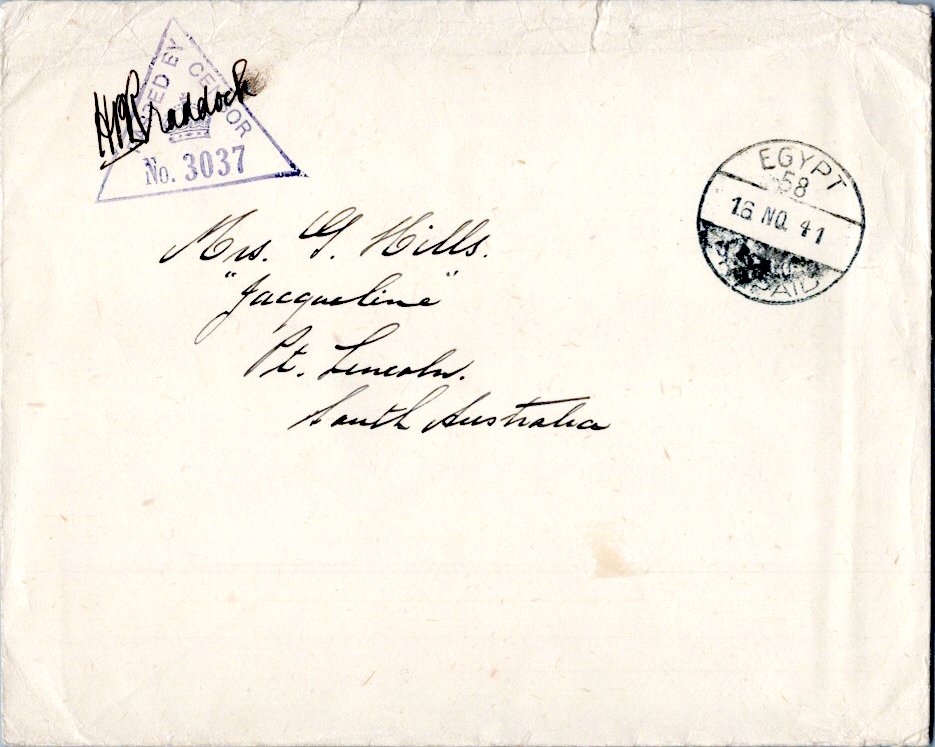 PASSED BY CENSOR
No. 3037
Braddock
EGYPT
58
16 NO 41
PAID
Mrs. G. Hills.
"Jacqueline"
Pt. Lincoln.
South Australia